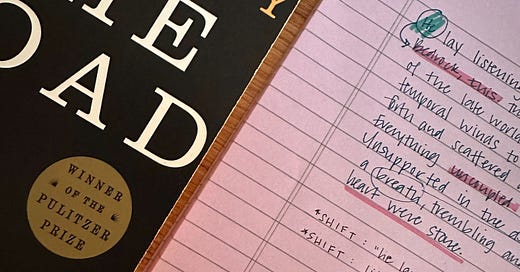 Y
HE
OAD
WINNER
OF THE
PULITZER
PRIZE
He lay listening
Bedrock, this.
of the late world
temporal winds to
forth and scattered
Everything uncoupled
Unsupported in the
a breath, trembling and
heart were stone.
*SHIFT: "he la
*SHIFT: